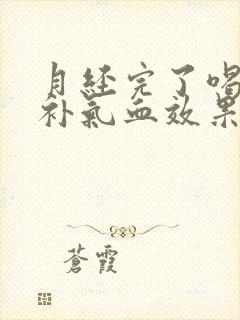 月经完了喝
补氣血效果
蒼霞